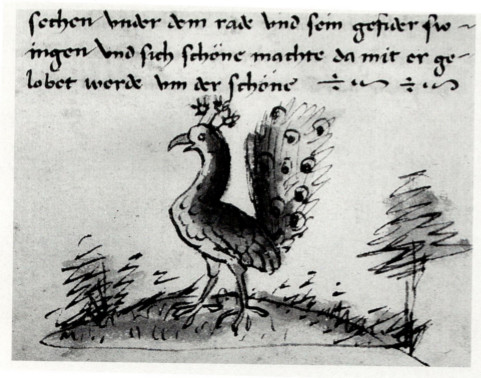 sechen vnder dem rade vnd sein gefider swingen vnd sich schöne machte da mit er gelobet werde vm der schöne